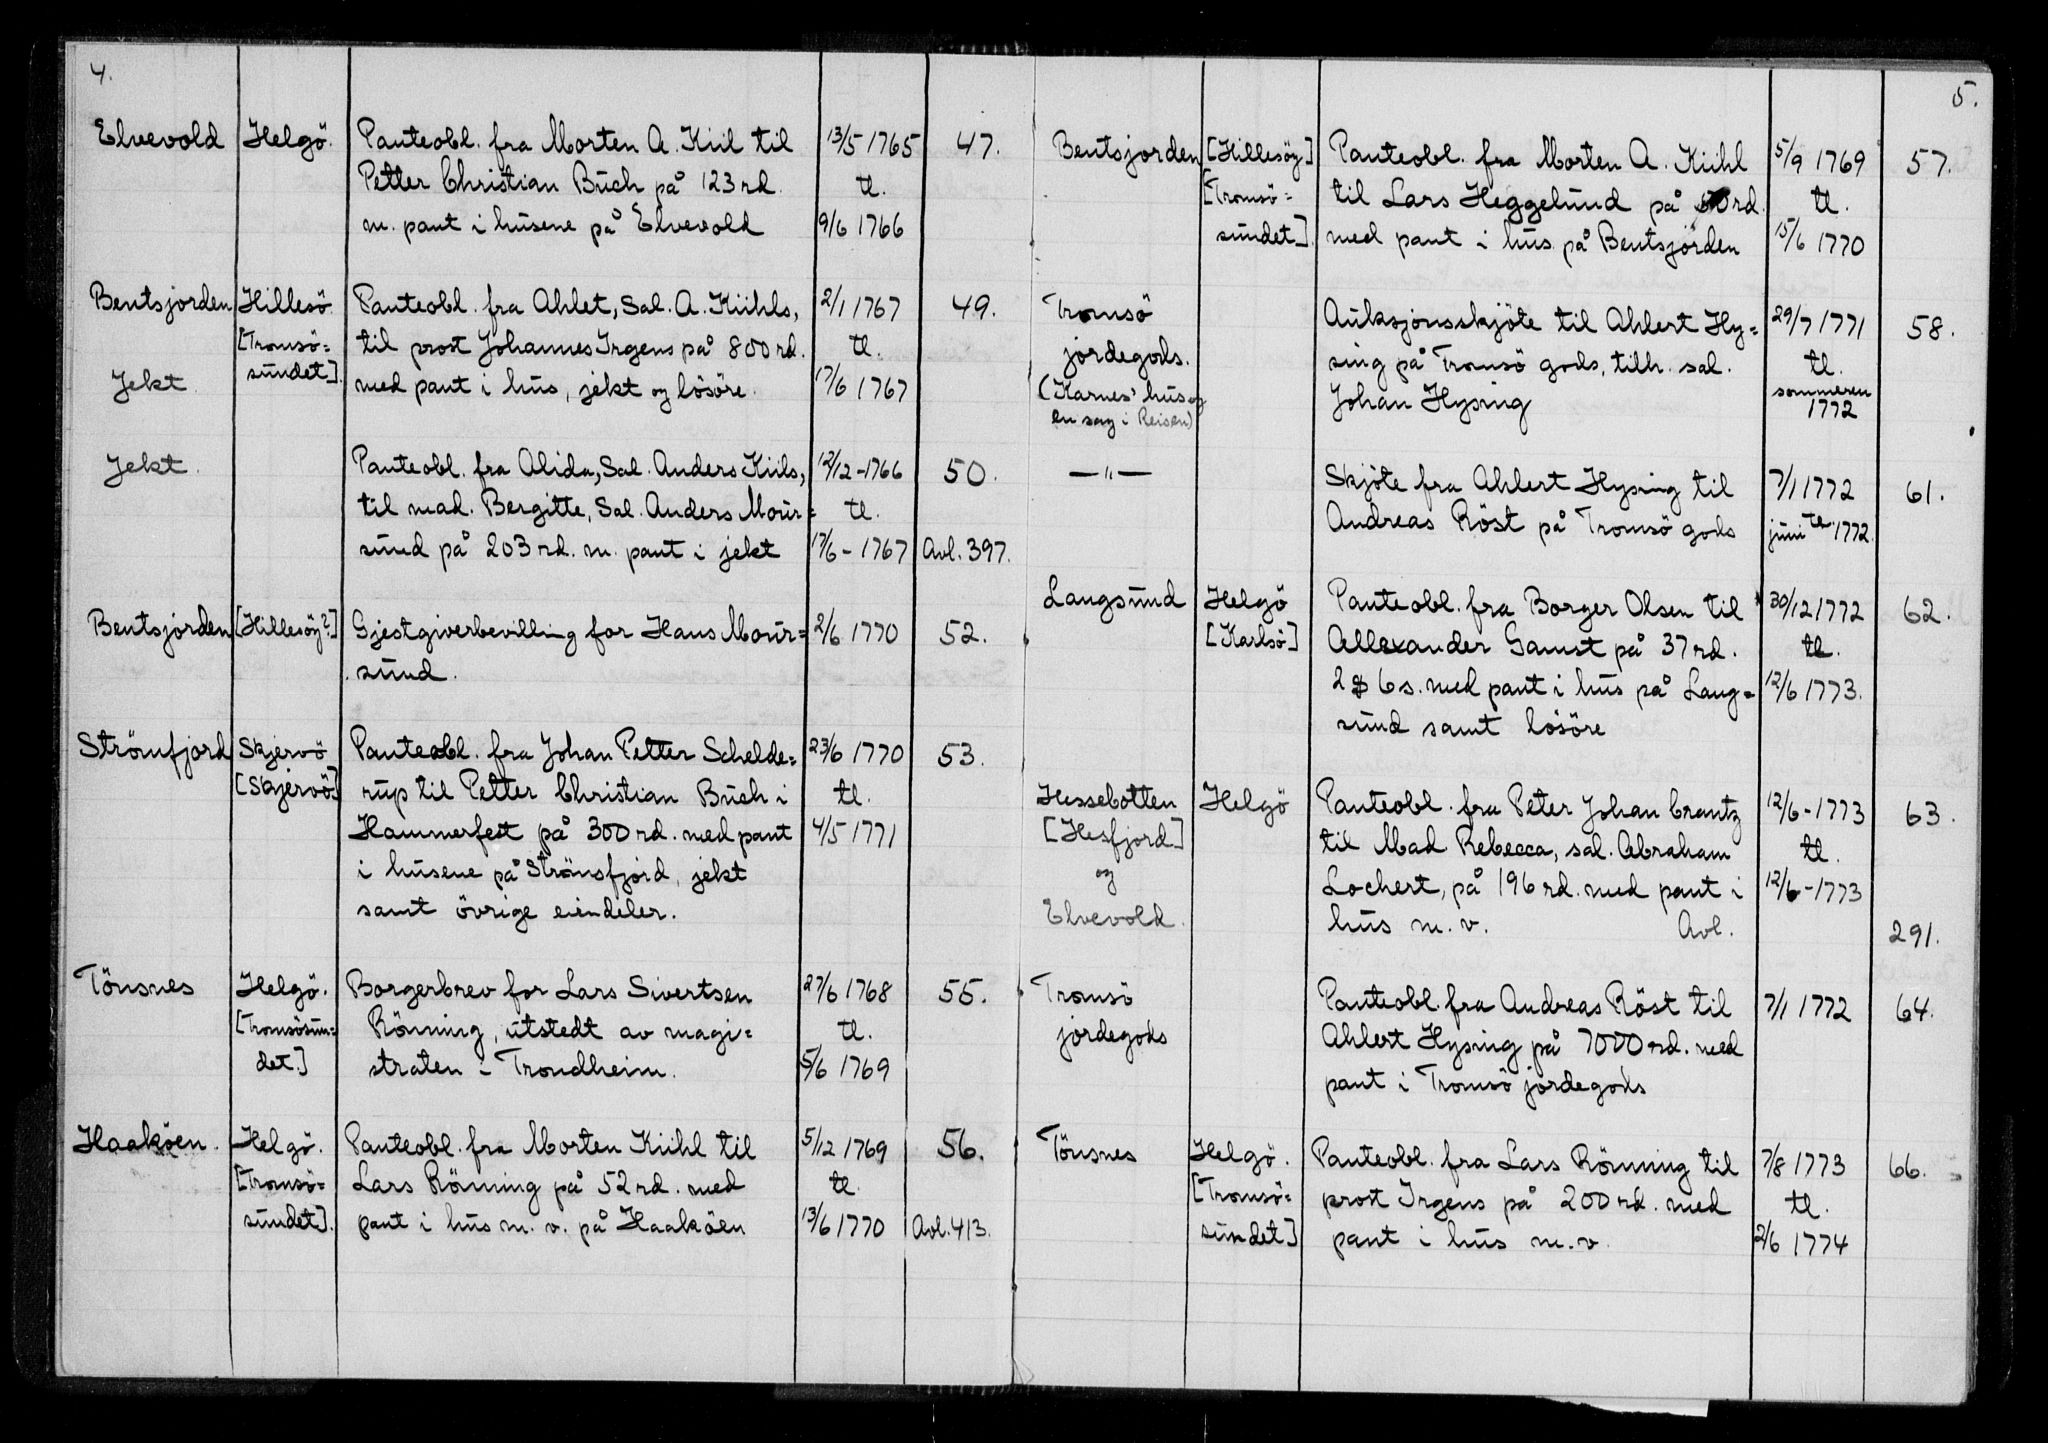 4.
Elvevold Helgö. Panteobl. fra Morten A. Kiil til 13/5 1765 47.
Petter Christian Buch på 123 rd. tl.
m. pant i husene på Elvevold 9/6 1766
Bentsjorden Hillesö. Panteobl. fra Ahlet, Sal. A. Kiihls, 2/1 1767 49.
[Tromsö= til prost Johannes Irgens på 800 rd. tl.
Jekt sundet]. med pant i hus, jekt og lösöre. 17/6 1767
Jekt. Panteobl. fra Alida, Sal. Anders Kiils, 12/12-1766 50.
til mad. Bergitte, Sal. Anders Mour= tl.
sund på 203 rd. m. pant i jekt 17/6-1767 Avl. 397.
Bentsjorden [Hillesöy?] Gjestgiverbevilling for Hans Mour= 2/6 1770 52.
sund.
Strömfjord Skjervö Panteobl. fra Johan Petter Schelde= 23/6 1770 53.
[Skjervö] rup til Petter Christian Buch i tl.
Hammerfest på 300 rd. med pant 4/5 1771
i husene på Strömsfjord, jekt
samt övrige eiendeler.
Tönsnes Helgö. Borgerbrev for Lars Sivertsen 27/6 1768 55.
[Tromsösun= Rönning, utstedt av magi= tl.
det.] straten i Trondheim. 5/6 1769
Haaköen. Helgö. Panteobl. fra Morten Kiihl til 5/12 1769 56.
[Tromsö= Lars Rönning på 52 rd. med tl.
sundet]. pant i hus m. v. på Haaköen 13/6 1770 Avl. 413.
5.
Bentsjorden [Hillesöy] Panteobl. fra Morten A. Kiihl 5/9 1769 57.
[Tromsö= til Lars Heggelund på rd. tl.
sundet]. med pant i hus på Bentsjorden 15/6 1770
Tromsö Auksjonsskjöte til Ahlert Hy= 29/7 1771 58.
jordegods. sing på Tromsö gods, tilh. sal. tl.
(Karnes' hus og Johan Hysing sommeren
en sag i Reisen) 1772
—"— Skjöte fra Ahlert Hysing til 7/1 1772 61.
Andreas Röst på Tromsö gods juni tl. 1772.
Langsund Helgö Panteobl. fra Borger Olsen til 30/12 1772 62.
[Karlsö] Allexander Gamst på 37 rd. tl.
2 $ 6 s. med pant i hus på Lang= 12/6 1773.
sund samt lösöre
Hessebotten Helgö Panteobl. fra Peter Johan Crantz 12/6-1773 63.
[Hesfjord] til Mad Rebecca, sal. Abraham tl.
og Lochert, på 196 rd. med pant i 12/6-1773
Elvevold. hus m. v. Avl. 291.
Tromsö Panteobl. fra Andreas Röst til 7/1 1772 64.
jordegods Ahlert Hysing på 7000 rd. med
pant i Tromsö jordegods
Tönsnes Helgö. Panteobl. fra Lars Rönning til 7/8 1773 66.
[Tromsö= prost Irgens på 200 rd. med tl.
sundet] pant i hus m. v. 2/6 1774